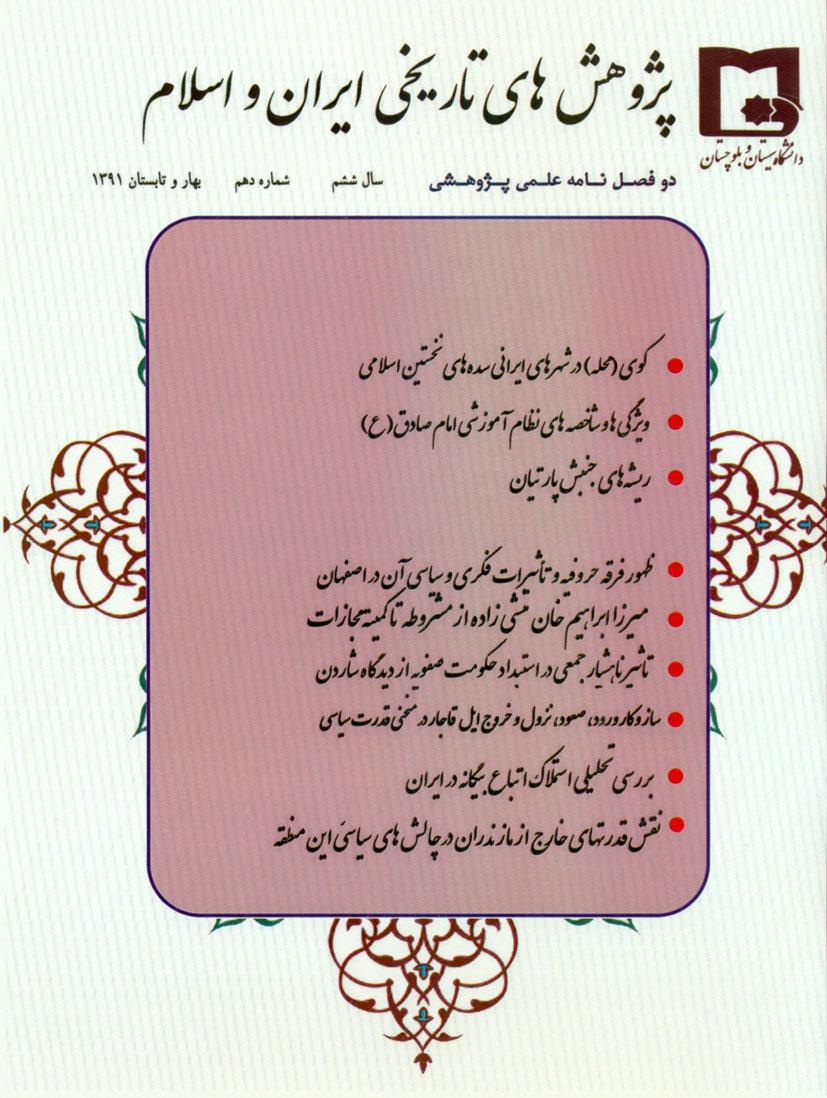 پژوهش های تاریخی ایران و اسلام
دانشگاه سیستان و بلوچستان
دو فصل نامه علمی پژوهشی سال ششم شماره دهم بهار و تابستان ۱۳۹۱
کوی (محله) در شهرهای ایرانی سده های نخستین اسلامی
ویژگی ها و شاخصه های نظام آموزشی امام صادق (ع)
ریشه های جنبش پارتیان
ظهور فرقه حروفیه و تأثیرات فکری و سیاسی آن در اصفهان
میرزا ابراهیم خان منشی زاده از مشروطه تا کمیته مجازات
تاثیر ناهشیار جمعی در استبداد حکومت صفویه از دیدگاه شاردن
ساز و کار ورود، صعود، نزول و خروج ایل قاجار در منحنی قدرت سیاسی
بررسی تحلیلی استملاک اتباع بیگانه در ایران
نقش قدرتهای خارج از مازندران در چالش های سیاسی این منطقه